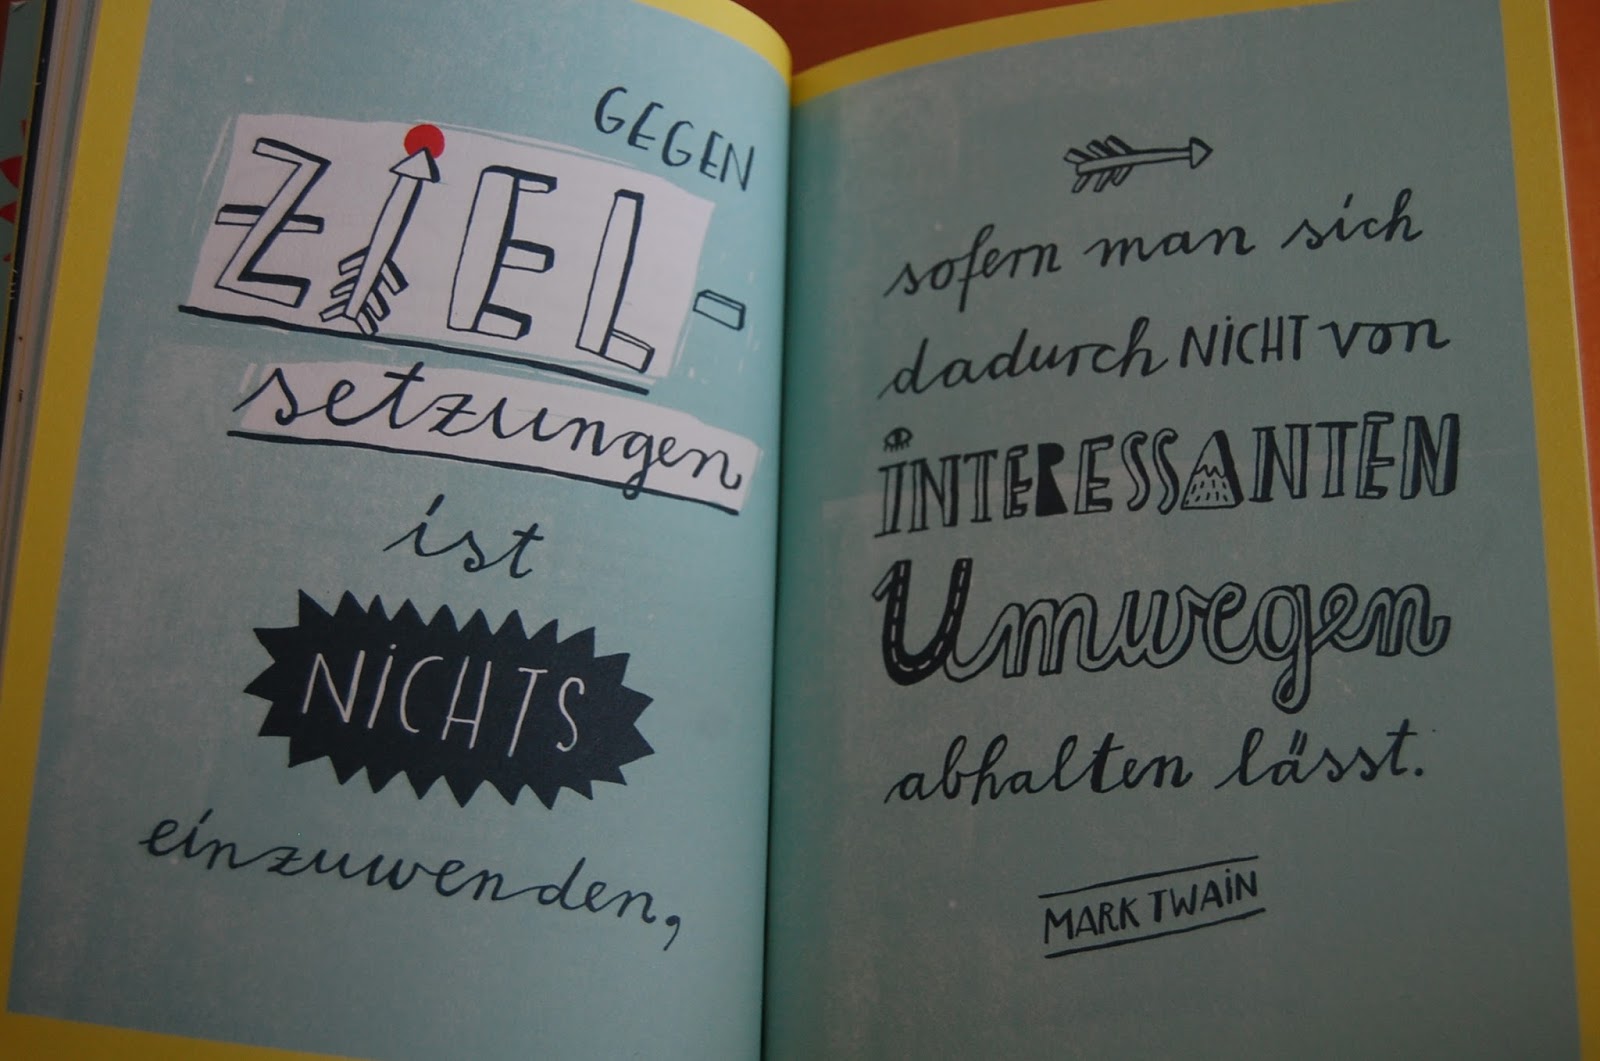 GEGEN
ZiEL-
setzungen
ist
NiCHTS
einzuwenden,
sofern man sich
dadurch NiCHT von
iNTERESSANTEN
Umwegen
abhalten lässt.
MARK TWAiN